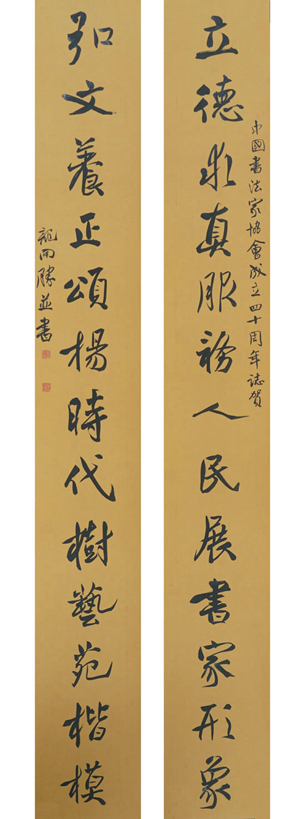 立德求真服務人民展書家形象
中國書法家協會成立四十周年誌賀
弘文養正頌楊時代樹藝苑楷模
龍開勝並書